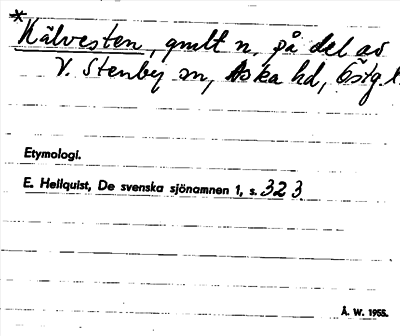 *Kälvesten, gmlt n, på del av
V. Stenby sn, Aska hd, Östg. l.
Etymologi.
E. Hellquist, De svenska sjönamnen 1, s. 323
Å. W. 1955.